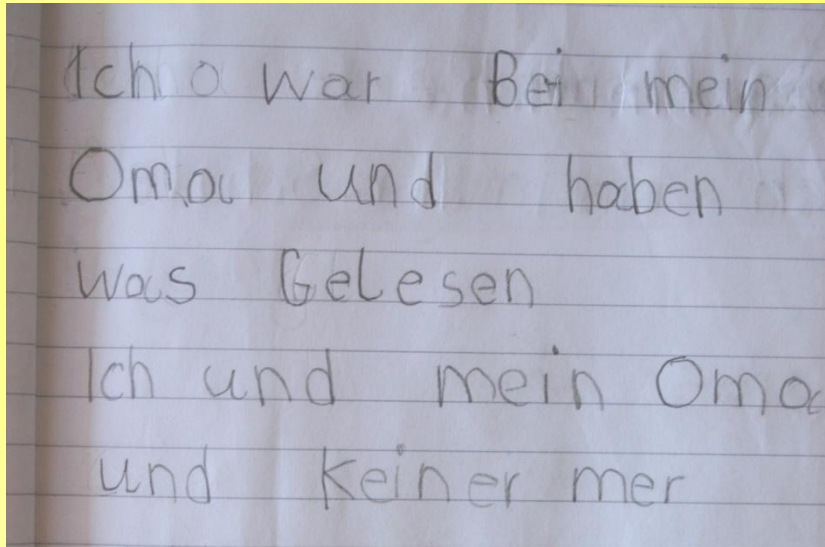 Ich o war Bei mein
Oma und haben
was Gelesen
Ich und mein Oma
und Keiner mer